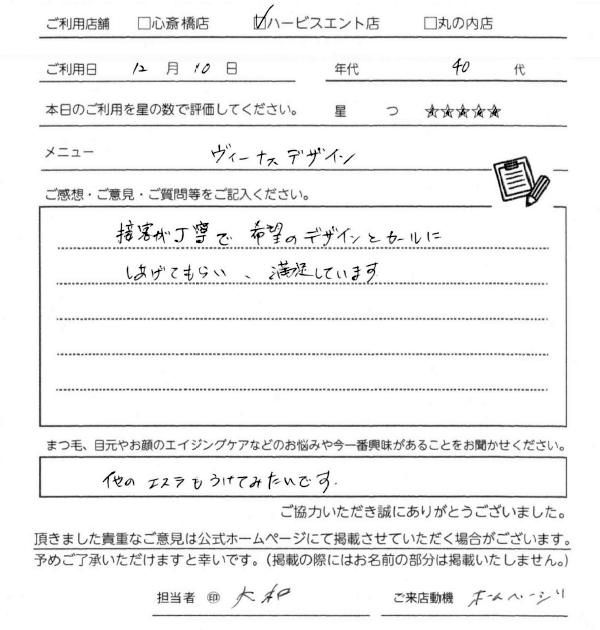 ご利用店舗 □心斎橋店 ☑ハービスエント店 □丸の内店
ご利用日 12 月 10 日 年代 40 代
本日のご利用を星の数で評価してください。 星 つ ☆☆☆☆☆
メニュー ヴィーナスデザイン
ご感想・ご意見・ご質問等をご記入ください。
接客が丁寧で 希望のデザインとカールに
しあげてもらい、満足しています
まつ毛、目元やお顔のエイジングケアなどのお悩みや今一番興味があることをお聞かせください。
他の エステもうけてみたいです.
ご協力いただき誠にありがとうございました。
頂きました貴重なご意見は公式ホームページにて掲載させていただく場合がございます。
予めご了承いただけますと幸いです。(掲載の際にはお名前の部分は掲載いたしません。)
担当者 ㊞ 大和 ご来店動機 ホームページ